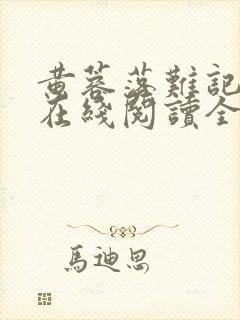 黄蓉落難記
在綫閱讀全
馬迪恩